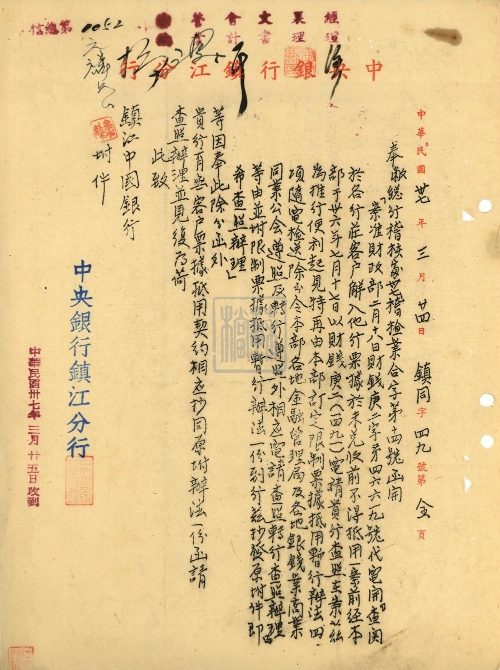 第總信
0052
經理
襄理
文書
會計
營業
中央銀行鎮江分行
中華民國卅七年三月廿四日 鎮同字四九號第全頁
奉敝總行稽核處卅七稽檢業合字第十四號函開
「案准財政部二月十八日財錢庚二字第四六六九號代電開查関
於各行莊客戶解入他行票據於未兌收前不得抵用一案前經本
部于卅六年七月十七日以財錢庚二(四九一)電請貴行查照在案茲
為推行便利起見特再由本部訂定限制票據抵用暫行辦法四
項隨電檢送除分令本部各地金融管理局及各地銀錢業商業
同業公會遵照及轉行遵照外相應電請查照轉行查照辦理
等由並附限制票據抵用暫行辦法一份到行茲抄發原附件即
希查照辦理」
等因奉此除分函外
貴行有無客戶票據抵用契約相應抄同原附辦法一份函請
查照辦理並見復為荷
此致
鎮江中國銀行
附件
中央銀行鎮江分行
中華民國卅七年三月廿五日收到